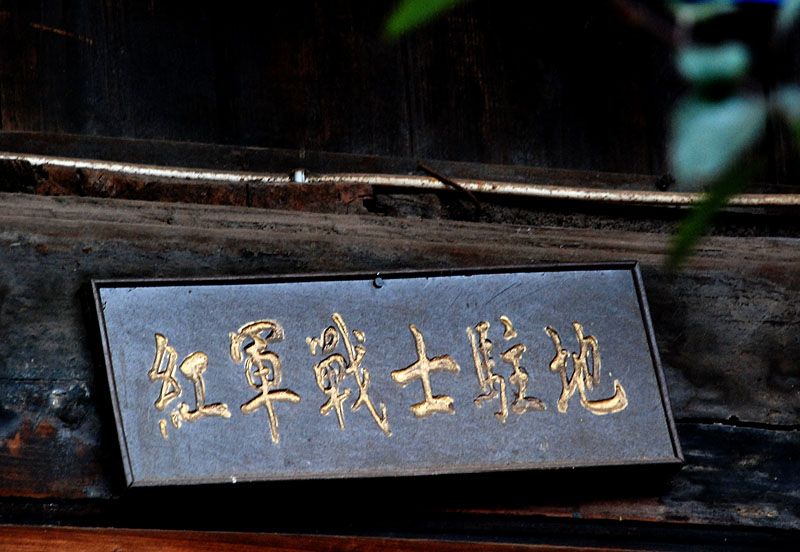 紅軍戰士駐地